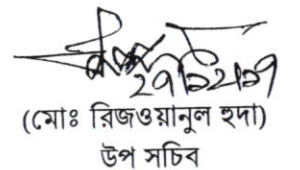 (মোঃ রিজওয়ানুল হুদা)
উপ সচিব